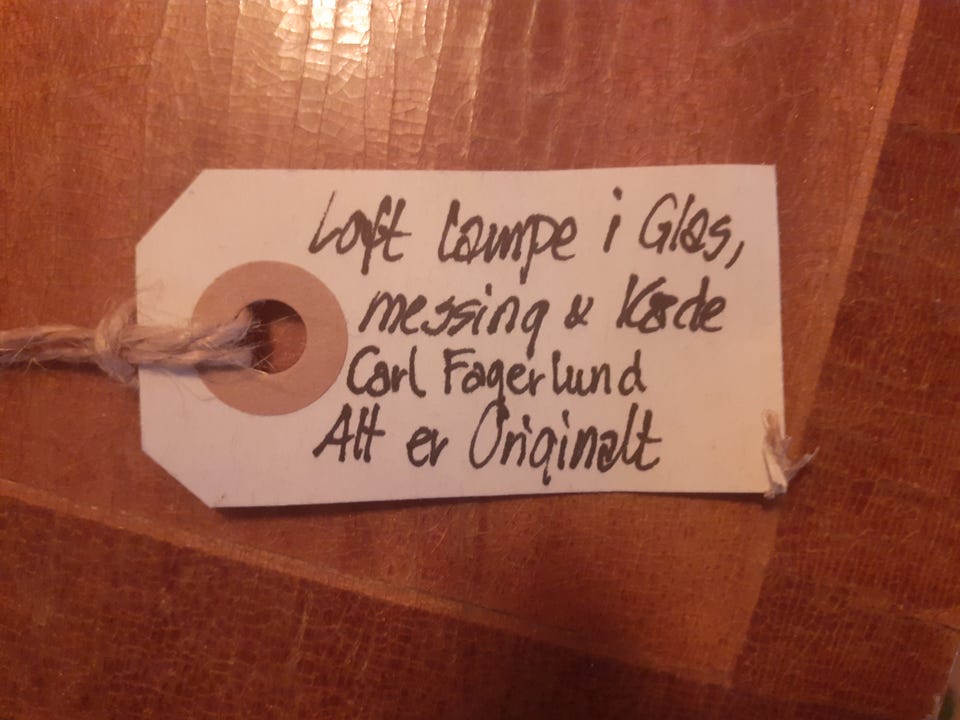 Loft Lampe i Glas,
messing & Kæde
Carl Fagerlund
Alt er Originalt